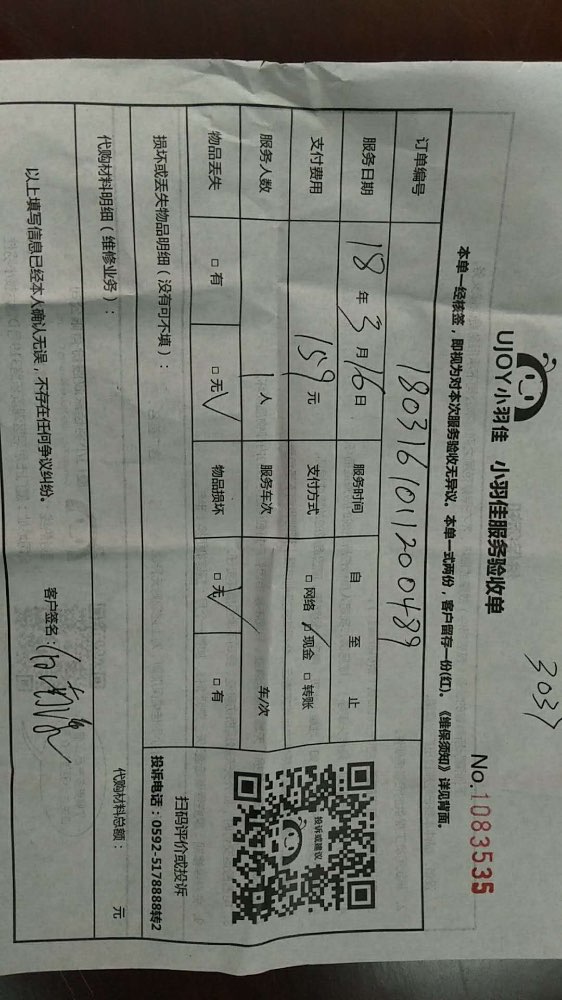 3037
UJOY小羽佳 小羽佳服务验收单
No.1083535
本单一经核签，即视为对本次服务验收无异议。本单一式两份，客户留存一份(红)。《维保须知》详见背面。
订单编号 1803161011200489
服务日期 18年3月16日 服务时间 自 至 止
支付费用 159元 支付方式 □网络 ☑现金 □转账
服务人数 1人 服务车次 / 车/次
物品丢失 □有 □无√ 物品损坏 □无√ □有
投诉或建议
扫码评价或投诉
投诉电话：0592-5178888转2
损坏或丢失物品明细（没有可不填）：
代购材料明细（维修业务）： 代购材料总额： 元
以上填写信息已经本人确认无误，不存在任何争议纠纷。 客户签名：